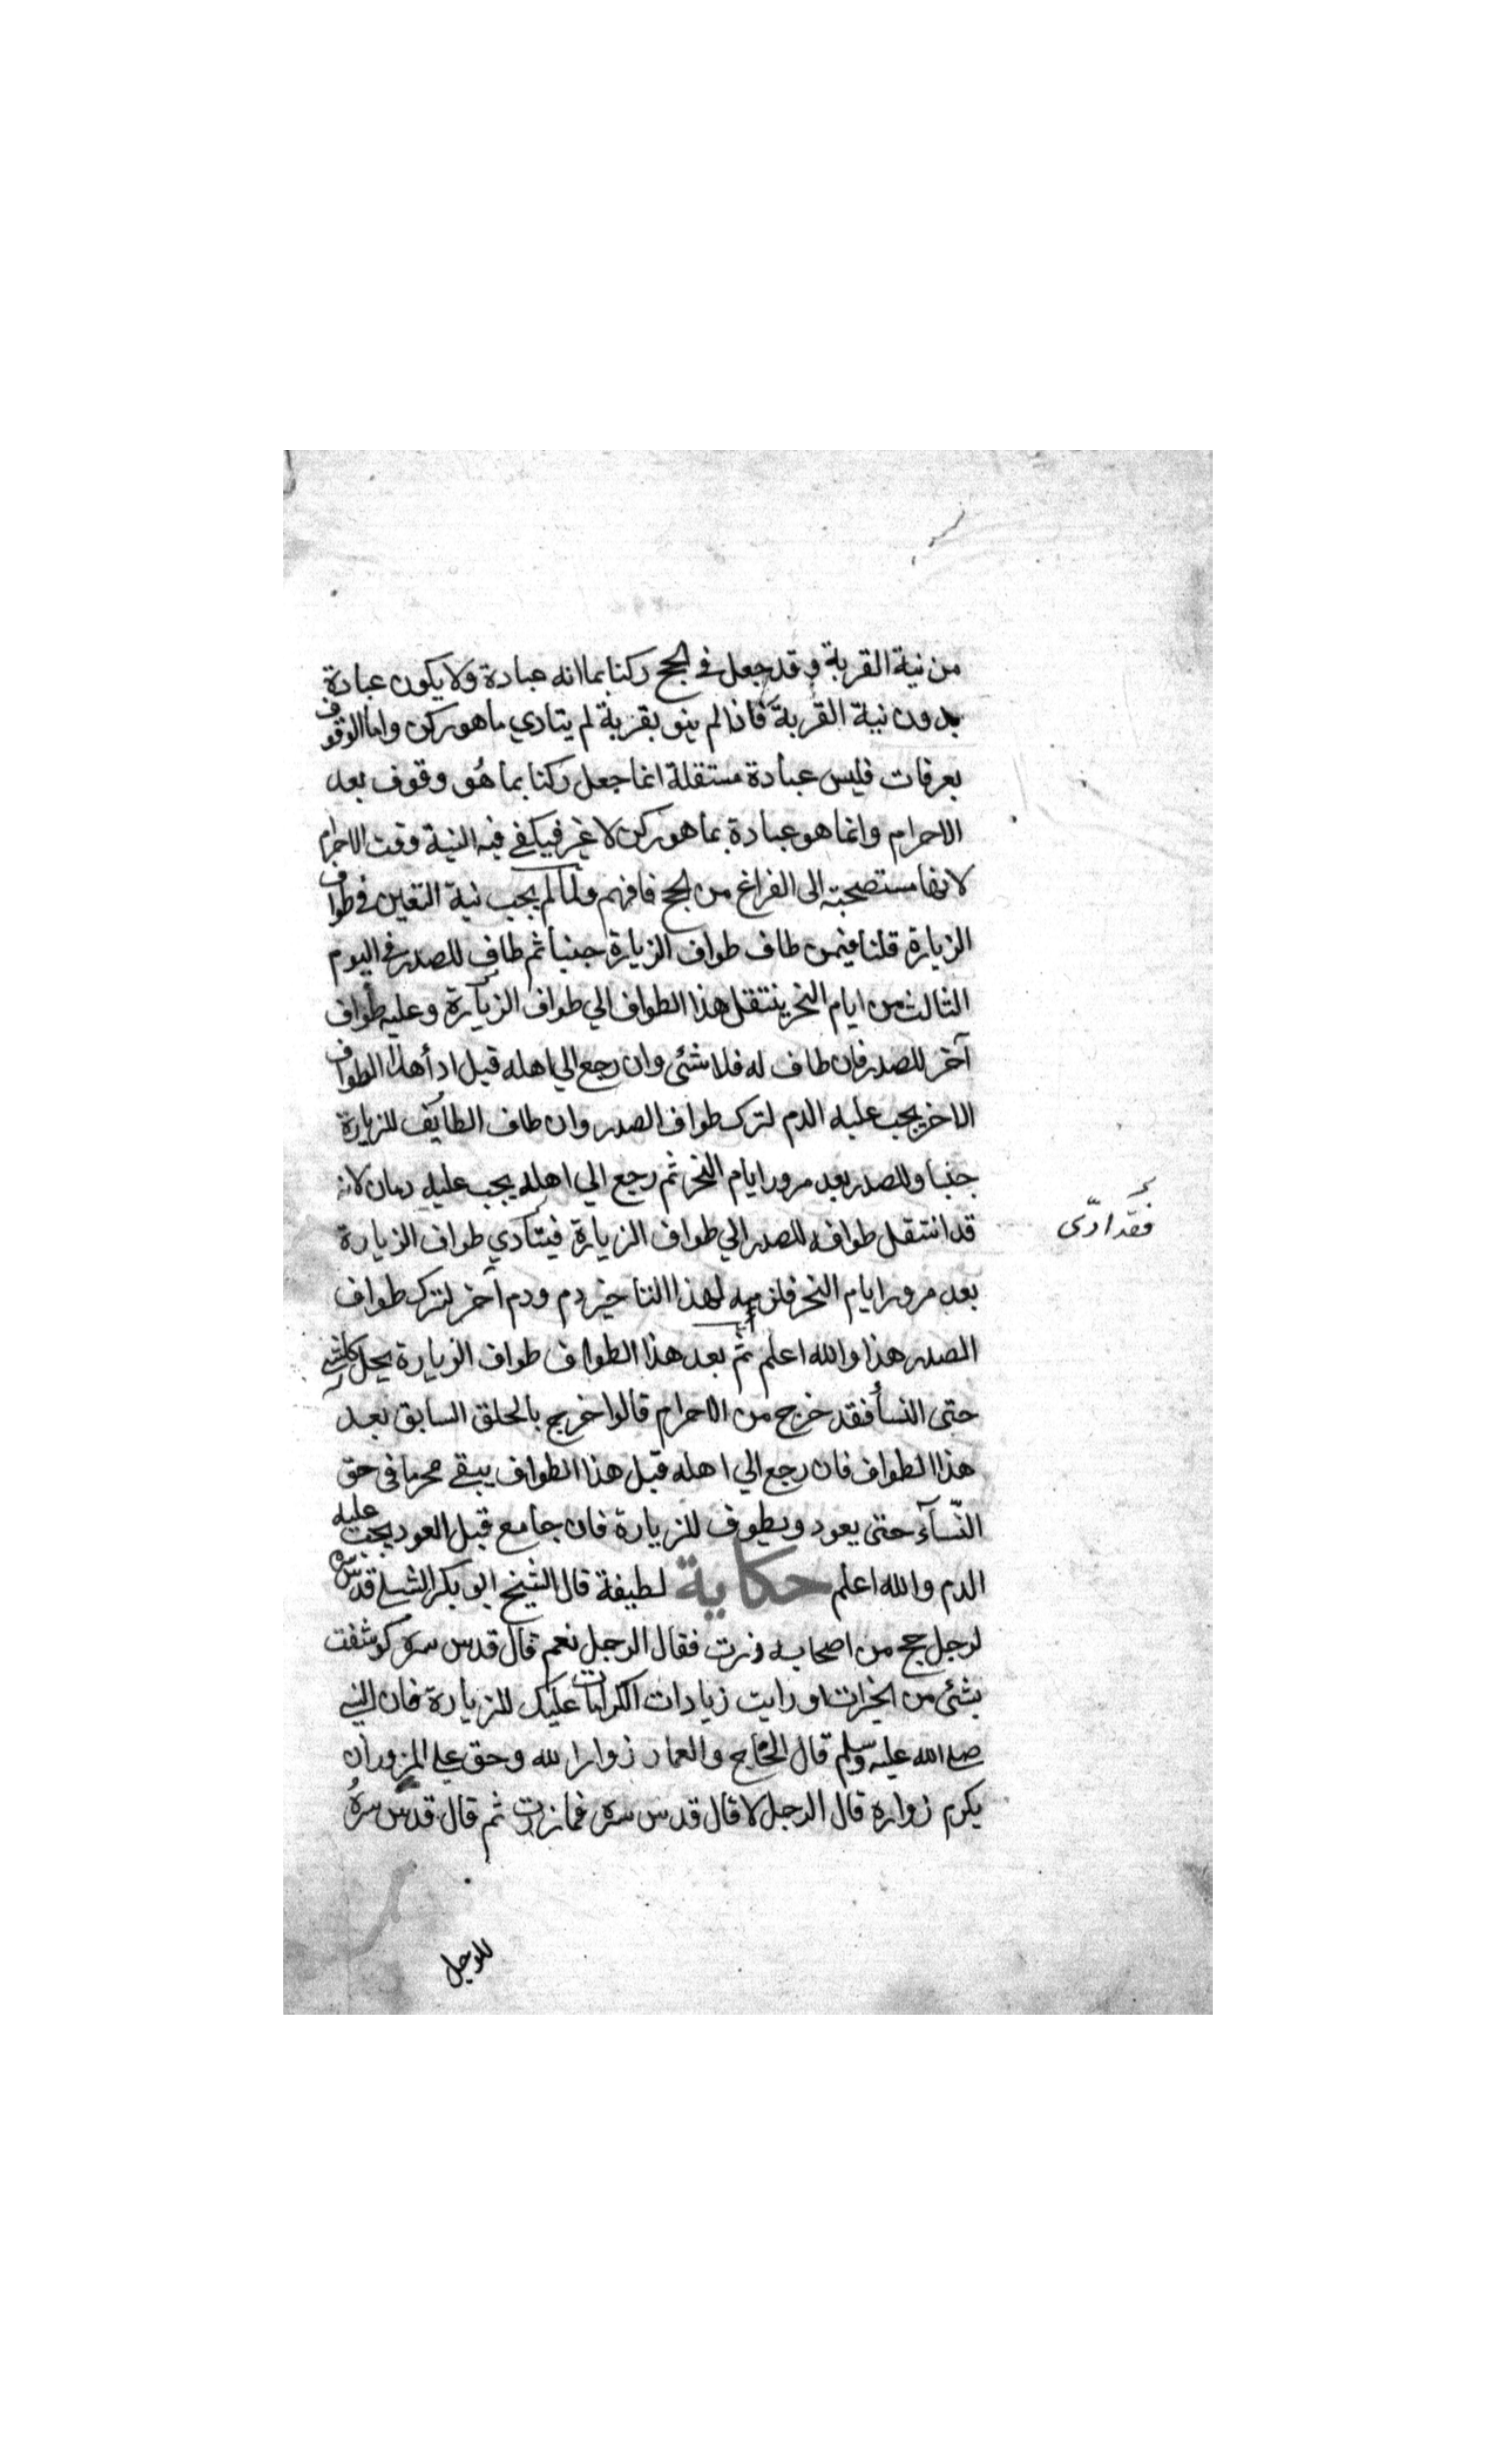 من نية القربة وقد جعل في الحج ركنا بما انه عبادة ولا يكون عبادة
بدون نية القربة فاذا لم ينو بقربة لم يتادي ما هو ركن واما الوقوف
بعرفات فليس عبادة مستقلة انما جعل ركنا بما هو وقوف بعد
الاحرام وانما هو عبادة بما هو ركن لا غير فيكفي فيه النية وقت الاحرام
لانها مستصحبة الى الفراغ من الحج فافهم ولما لم يجب نية التعين في طواف
الزيارة قلنا فيمن طاف طواف الزيارة جنبا ثم طاف للصدر في اليوم
الثالث من ايام النحر ينتقل هذا الطواف الي طواف الزيارة وعليه طواف
آخر للصدر فان طاف له فلا شئ وان رجع الي اهله قبل ادأ هذا الطواف
الاخر يجب عليه الدم لترك طواف الصدر وان طاف الطايف للزيارة
جنبا وللصدر بعد مرور ايام النحر ثم رجع الي اهله يجب عليه دمان لانه
قد انتقل طوافه للصدر الي طواف الزيارة فيتأدي طواف الزيارة
فقد ادّى
بعد مرور ايام النحر فلزمه لهذا التاخير دم ودم آخر لترك طواف
الصدر هذا والله اعلم ثم بعد هذا الطواف طواف الزيارة يحل كل شئ
حتى النسأ فقد خرج من الاحرام قالوا خرج بالحلق السابق بعد
هذا الطواف فان رجع الي اهله قبل هذا الطواف يبقي محرما في حق
النّسآء حتى يعود ويطوف للزيارة فان جامع قبل العود يجب عليه
الدم والله اعلم حكاية لطيفة قال الشيخ ابو بكر الشبلي قدس سره
لرجل حج من اصحابه زرت فقال الرجل نعم قال قدس سره كوشفت
بشئ من الخيرات او رايت زيادات الكرامات عليك للزيارة فان النبي
صلى الله عليه وسلم قال الحجاج والعمار زوارا لله وحق على المزور ان
يكرم زواره قال الرجل لا قال قدس سره فما زرت ثم قال قدس سره
للرجل